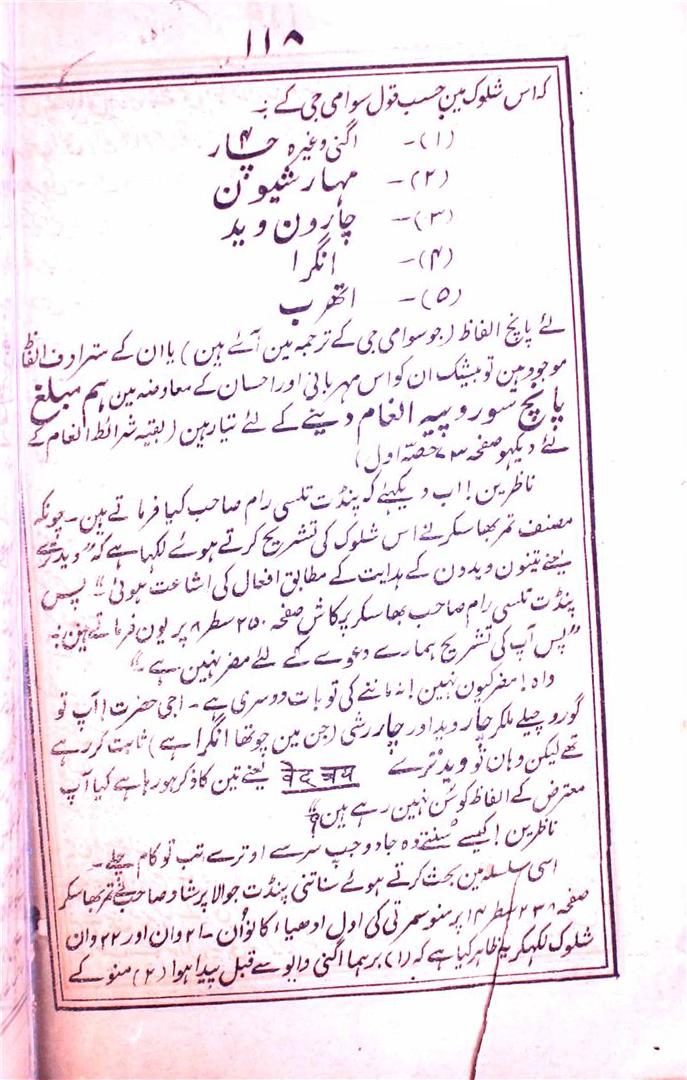 ۱۱۸
کہ اس شلوک مین حسب قول سوامی جی کے :۔
(۱)- اگنی وغیرہ چار
(۲)- مہارشیون
(۳)- چارون وید
(۴)- انگرا
(۵)- اتھرب
لئے پانچ الفاظ (جو سوامی جی کے ترجمہ مین آئے ہین) یا ان کے مترادف الفاظ
موجود ہین تو بیشک ان کو اس مہربانی اور احسان کے معاوضہ مین ہم مبلغ
پانچ سو روپیہ انعام دینے کے لئے تیار ہین (بقیہ شرائط انعام کے
لئے دیکہو صفحہ ۷۳ حصہ اول)
ناظرین! اب دیکہئے کہ پنڈت تلسی رام صاحب کیا فرماتے ہین۔ چونکہ
مصنف تمر بھاسکر نے اس شلوک کی تشریح کرتے ہوئے لکہا ہے کہ "وید ترے
یعنے تینون ویدون کے ہدایت کے مطابق افعال کی اشاعت ہوئی" پس
پنڈت تلسی رام صاحب بھاسکر پرکاش صفحہ ۲۵۰ سطر ۸ پر یون فرماتے ہین:۔
"پس آپ کی تشریح ہمارے دعوے کے لئے مضر نہین ہے۔"
واہ! مضر کیون نہین! نہ ماننے کی تو بات دوسری ہے۔ اجی حضرت! آپ تو
گورو چیلے ملکر چار وید اور چار رشی (جن مین چوتھا انگرا ہے) ثابت کر رہے
تھے لیکن وہان تو وید ترے वेद त्रय یعنے تین کا ذکر ہو رہا ہے کیا آپ
معترض کے الفاظ کو سن نہین رہے ہین؟"
ناظرین! کیسے سنتے وہ جادو جب سر سے اوترے تب تو کام چلے۔
اسی سلسلہ مین بحث کرتے ہوئے سناتنی پنڈت جوالا پرشاد صاحب نے تمر بھاسکر
صفحہ ۲۳۸ سطر ۱۴ پر منو سمرتی کی اول ادھیاء کا نوان۔ ۲۱ وان اور ۲۲ وان
شلوک لکہکر یہ ظاہر کیا ہے کہ (۱) برہما اگنی وایو سے قبل پیدا ہوا (۲) منو کے